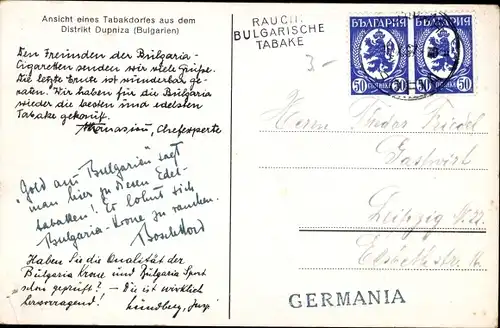 Ansicht eines Tabakdorfes aus dem
Distrikt Dupniza (Bulgarien)
Den Freunden der Bulgaria-
Cigaretten senden wir viele Grüsse.
Die letzte Ernte ist wunderbar ge-
raten. Wir haben für die Bulgaria
wieder die besten und edelsten
Tabake gekauft.
Athanassiou, Chefexperte
"Gold aus Bulgarien" sagt
man hier zu diesen Edel-
tabaken! Es lohnt sich
Bulgaria-Krone zu rauchen.
Haben Sie die Qualität der
Bulgaria Krone und Bulgaria Sport
schon geprüft? - Die ist wirklich
hervorragend!
RAUCHT
BULGARISCHE
TABAKE
3.-
БЪЛГАРИЯ БЪЛГАРИЯ
50 50 50
Herrn Theodor Friedel
Gastwirt
Leipzig N. 22.
Elsbethstr.
GERMANIA